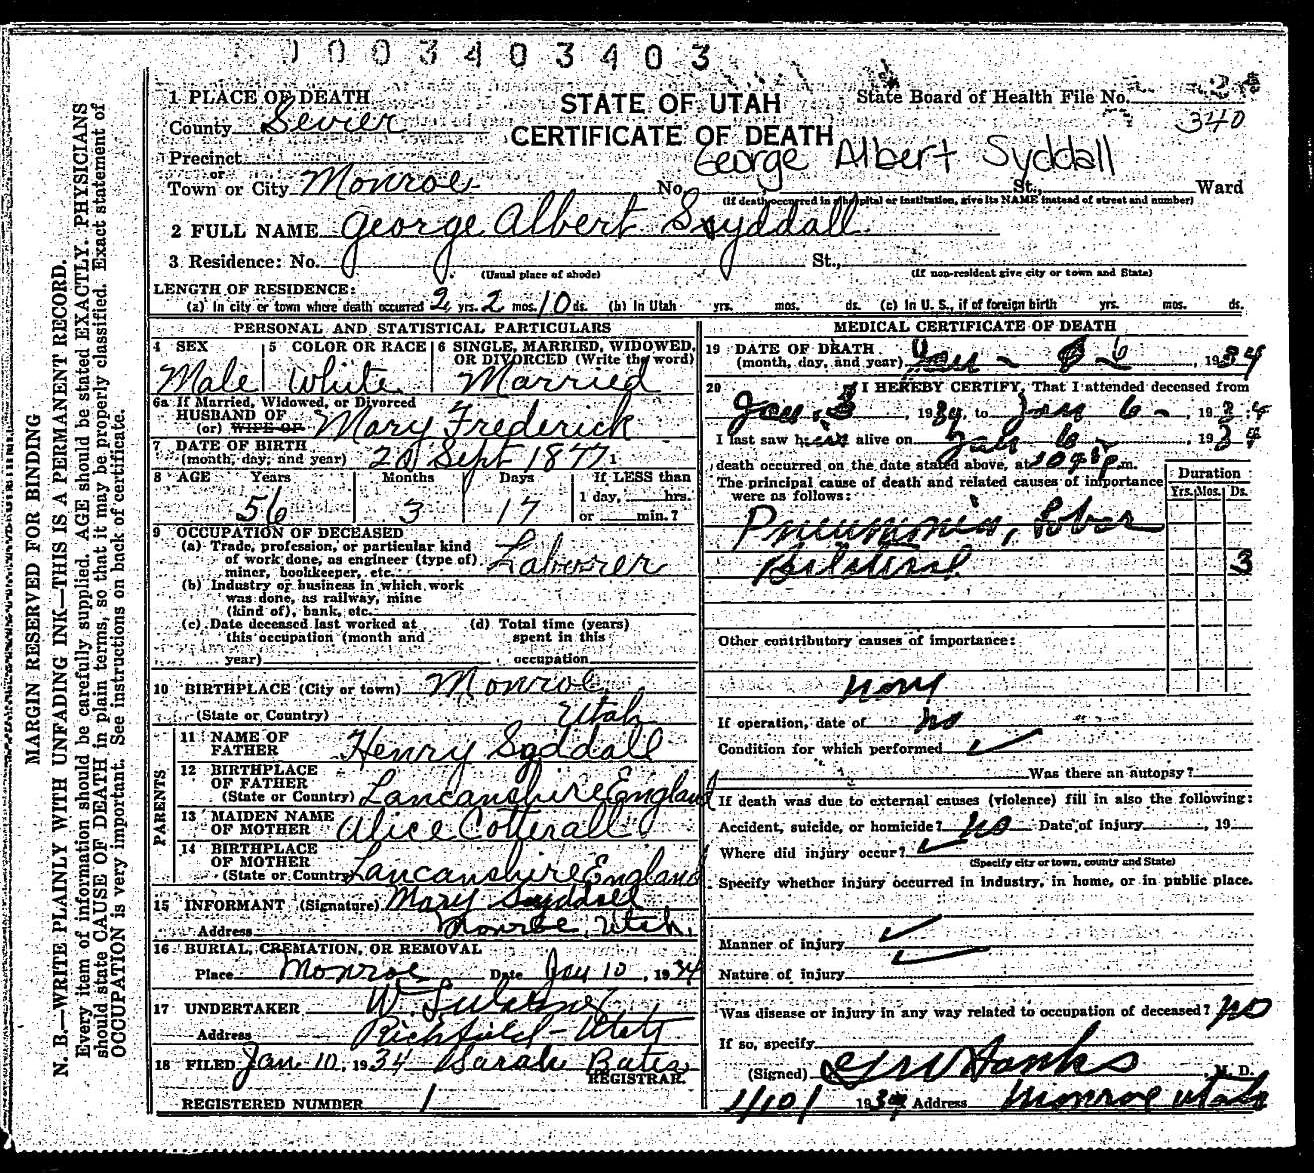 1003403403
STATE OF UTAH
CERTIFICATE OF DEATH
State Board of Health File No. 2
340
1 PLACE OF DEATH
County Sevier
Precinct
or
Town or City Monroe No. St., Ward
George Albert Syddall
(If death occurred in a hospital or institution, give its NAME instead of street and number)
2 FULL NAME George Albert Syddall
3 Residence: No. St.,
(Usual place of abode) (If non-resident give city or town and State)
LENGTH OF RESIDENCE:
(a) In city or town where death occurred 2 yrs. 2 mos. 10 ds. (b) In Utah yrs. mos. ds. (c) In U. S., if of foreign birth yrs. mos. ds.
PERSONAL AND STATISTICAL PARTICULARS
4 SEX Male
5 COLOR OR RACE White
6 SINGLE, MARRIED, WIDOWED, OR DIVORCED (Write the word) Married
6a If Married, Widowed, or Divorced
HUSBAND OF
(or) WIFE OF Mary Frederick
7 DATE OF BIRTH
(month, day, and year) 20 Sept 1877
8 AGE Years Months Days If LESS than
56 3 17 1 day, hrs.
or min.?
9 OCCUPATION OF DECEASED
(a) Trade, profession, or particular kind
of work done, as engineer (type of)
miner, bookkeeper, etc. Laborer
(b) Industry or business in which work
was done, as railway, mine
(kind of), bank, etc.
(c) Date deceased last worked at
this occupation (month and
year)
(d) Total time (years)
spent in this
occupation
10 BIRTHPLACE (City or town) Monroe
(State or Country) Utah
PARENTS
11 NAME OF
FATHER Henry Syddall
12 BIRTHPLACE
OF FATHER
(State or Country) Lancanshire England
13 MAIDEN NAME
OF MOTHER Alice Cotterall
14 BIRTHPLACE
OF MOTHER
(State or Country) Lancanshire England
15 INFORMANT (Signature) Mary Syddall
Address Monroe, Utah.
16 BURIAL, CREMATION, OR REMOVAL
Place Monroe Date Jan 10, 1934
17 UNDERTAKER W.
Address Richfield - Utah
18 FILED Jan 10, 1934 Sarah Bates
REGISTRAR.
REGISTERED NUMBER 1
MEDICAL CERTIFICATE OF DEATH
19 DATE OF DEATH
(month, day, and year) Jan - 6, 1934
20 I HEREBY CERTIFY, That I attended deceased from
Jan. 3, 1934, to Jan 6 -, 1934
I last saw him alive on Jan 6, 1934
death occurred on the date stated above, at 10 p.m.
The principal cause of death and related causes of importance
were as follows:
Duration
Yrs. Mos. Ds.
Pneumonia, Lobar
Bilateral 3
Other contributory causes of importance:
none
If operation, date of no
Condition for which performed ✓
Was there an autopsy?
If death was due to external causes (violence) fill in also the following:
Accident, suicide, or homicide? no Date of injury, 19
Where did injury occur? ✓
(Specify city or town, county and State)
Specify whether injury occurred in industry, in home, or in public place.
Manner of injury ✓
Nature of injury ✓
Was disease or injury in any way related to occupation of deceased? no
If so, specify
(Signed) Hanks, M. D.
1/10/ 1934 Address Monroe Utah
MARGIN RESERVED FOR BINDING
N. B.—WRITE PLAINLY WITH UNFADING INK—THIS IS A PERMANENT RECORD.
Every item of information should be carefully supplied. AGE should be stated EXACTLY. PHYSICIANS
should state CAUSE OF DEATH in plain terms, so that it may be properly classified. Exact statement of
OCCUPATION is very important. See instructions on back of certificate.